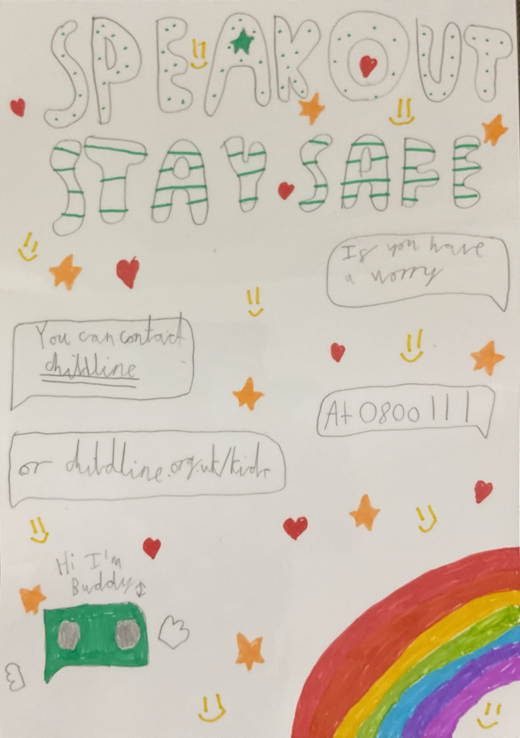 SPEAKOUT
STAY SAFE
Is you have
a worry
You can contact
childline
At 0800 111
or childline.org.uk/kids
Hi I'm
Buddy